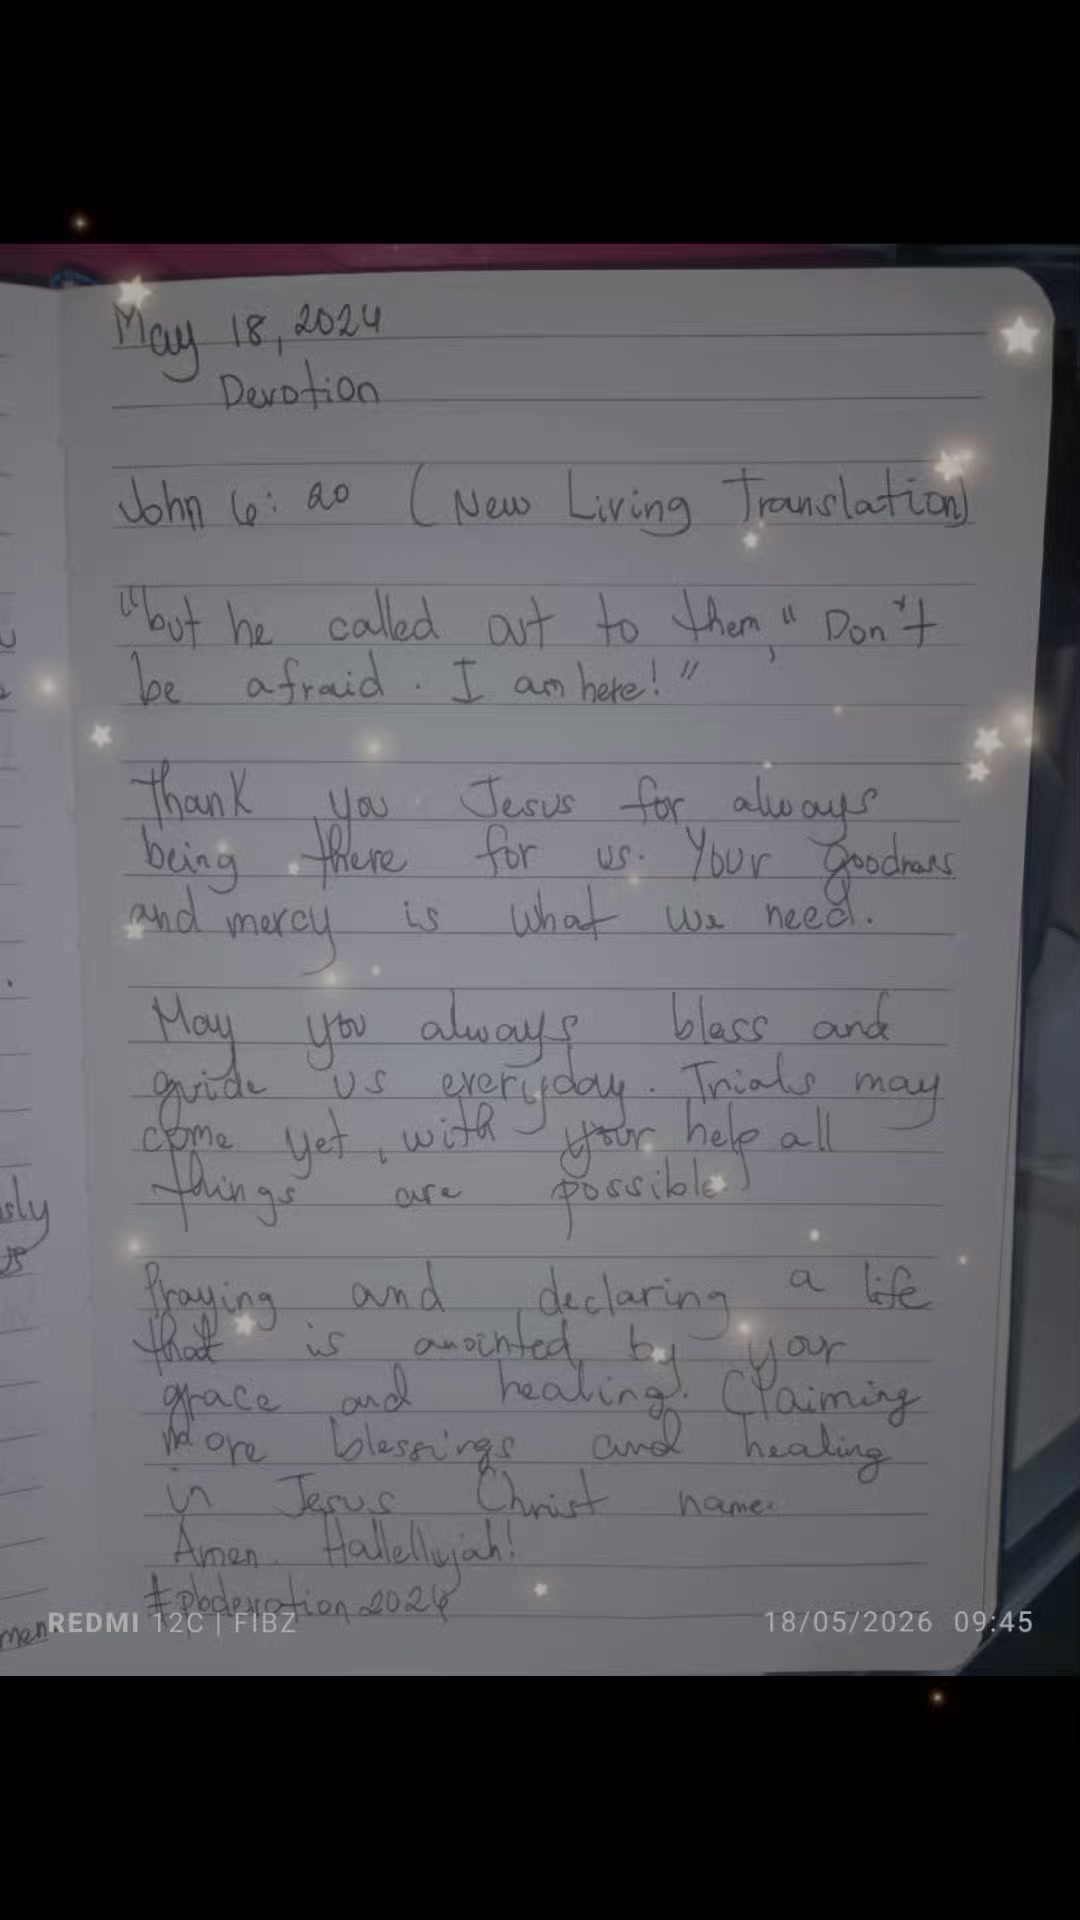 May 18, 2024
Devotion
John 6:20 (New Living Translation)
"but he called out to them, "Don't
be afraid. I am here!"
Thank you Jesus for always
being there for us. Your goodness
and mercy is what we need.
May you always bless and
guide us everyday. Trials may
come yet, with your help all
things are possible.
Praying and declaring a life
that is anointed by your
grace and healing. Claiming
More blessings and healing
in Jesus Christ name.
Amen. Hallellujah!
#pbdevotion2024
REDMI 12C | FIBZ
18/05/2026 09:45
sly
men